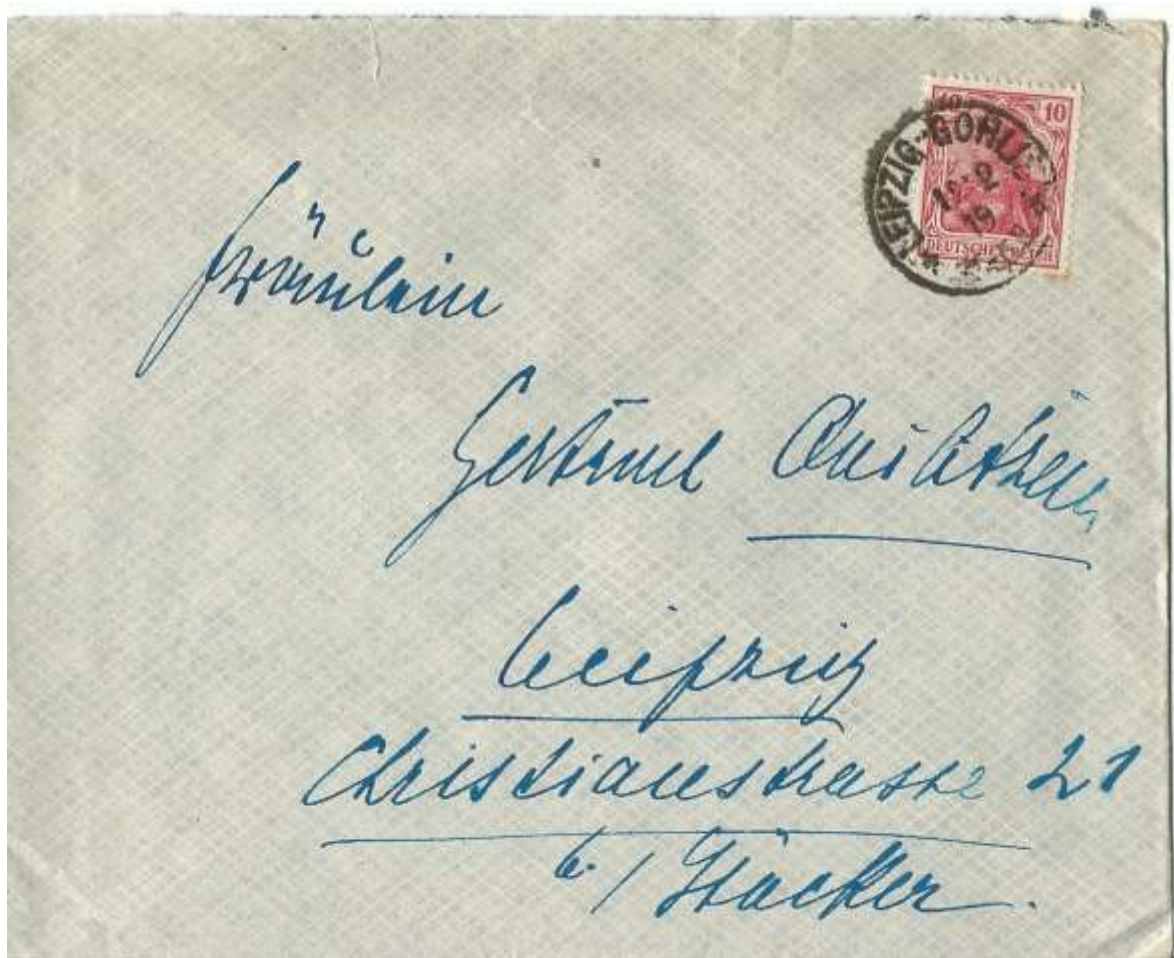 10 10
LEIPZIG-GOHLIS
19
DEUTSCHES REICH
Fräulein
Gertrud
Leipzig
Christianstrasse 21
b./